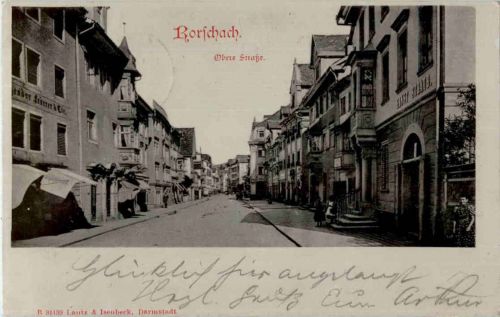 Rorschach.
Obere Straße.
Glücklich hier angelangt
Herzl. Grüße Euer Arthur
R 31439 Lautz & Isenbeck, Darmstadt.